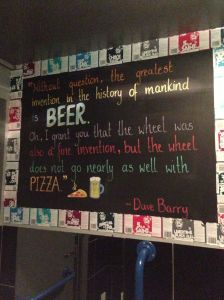 "Without question, the greatest
invention in the history of mankind
is BEER.
Oh, I grant you that the wheel was
also a fine invention, but the wheel
does not go nearly as well with
PIZZA."
- Dave Barry